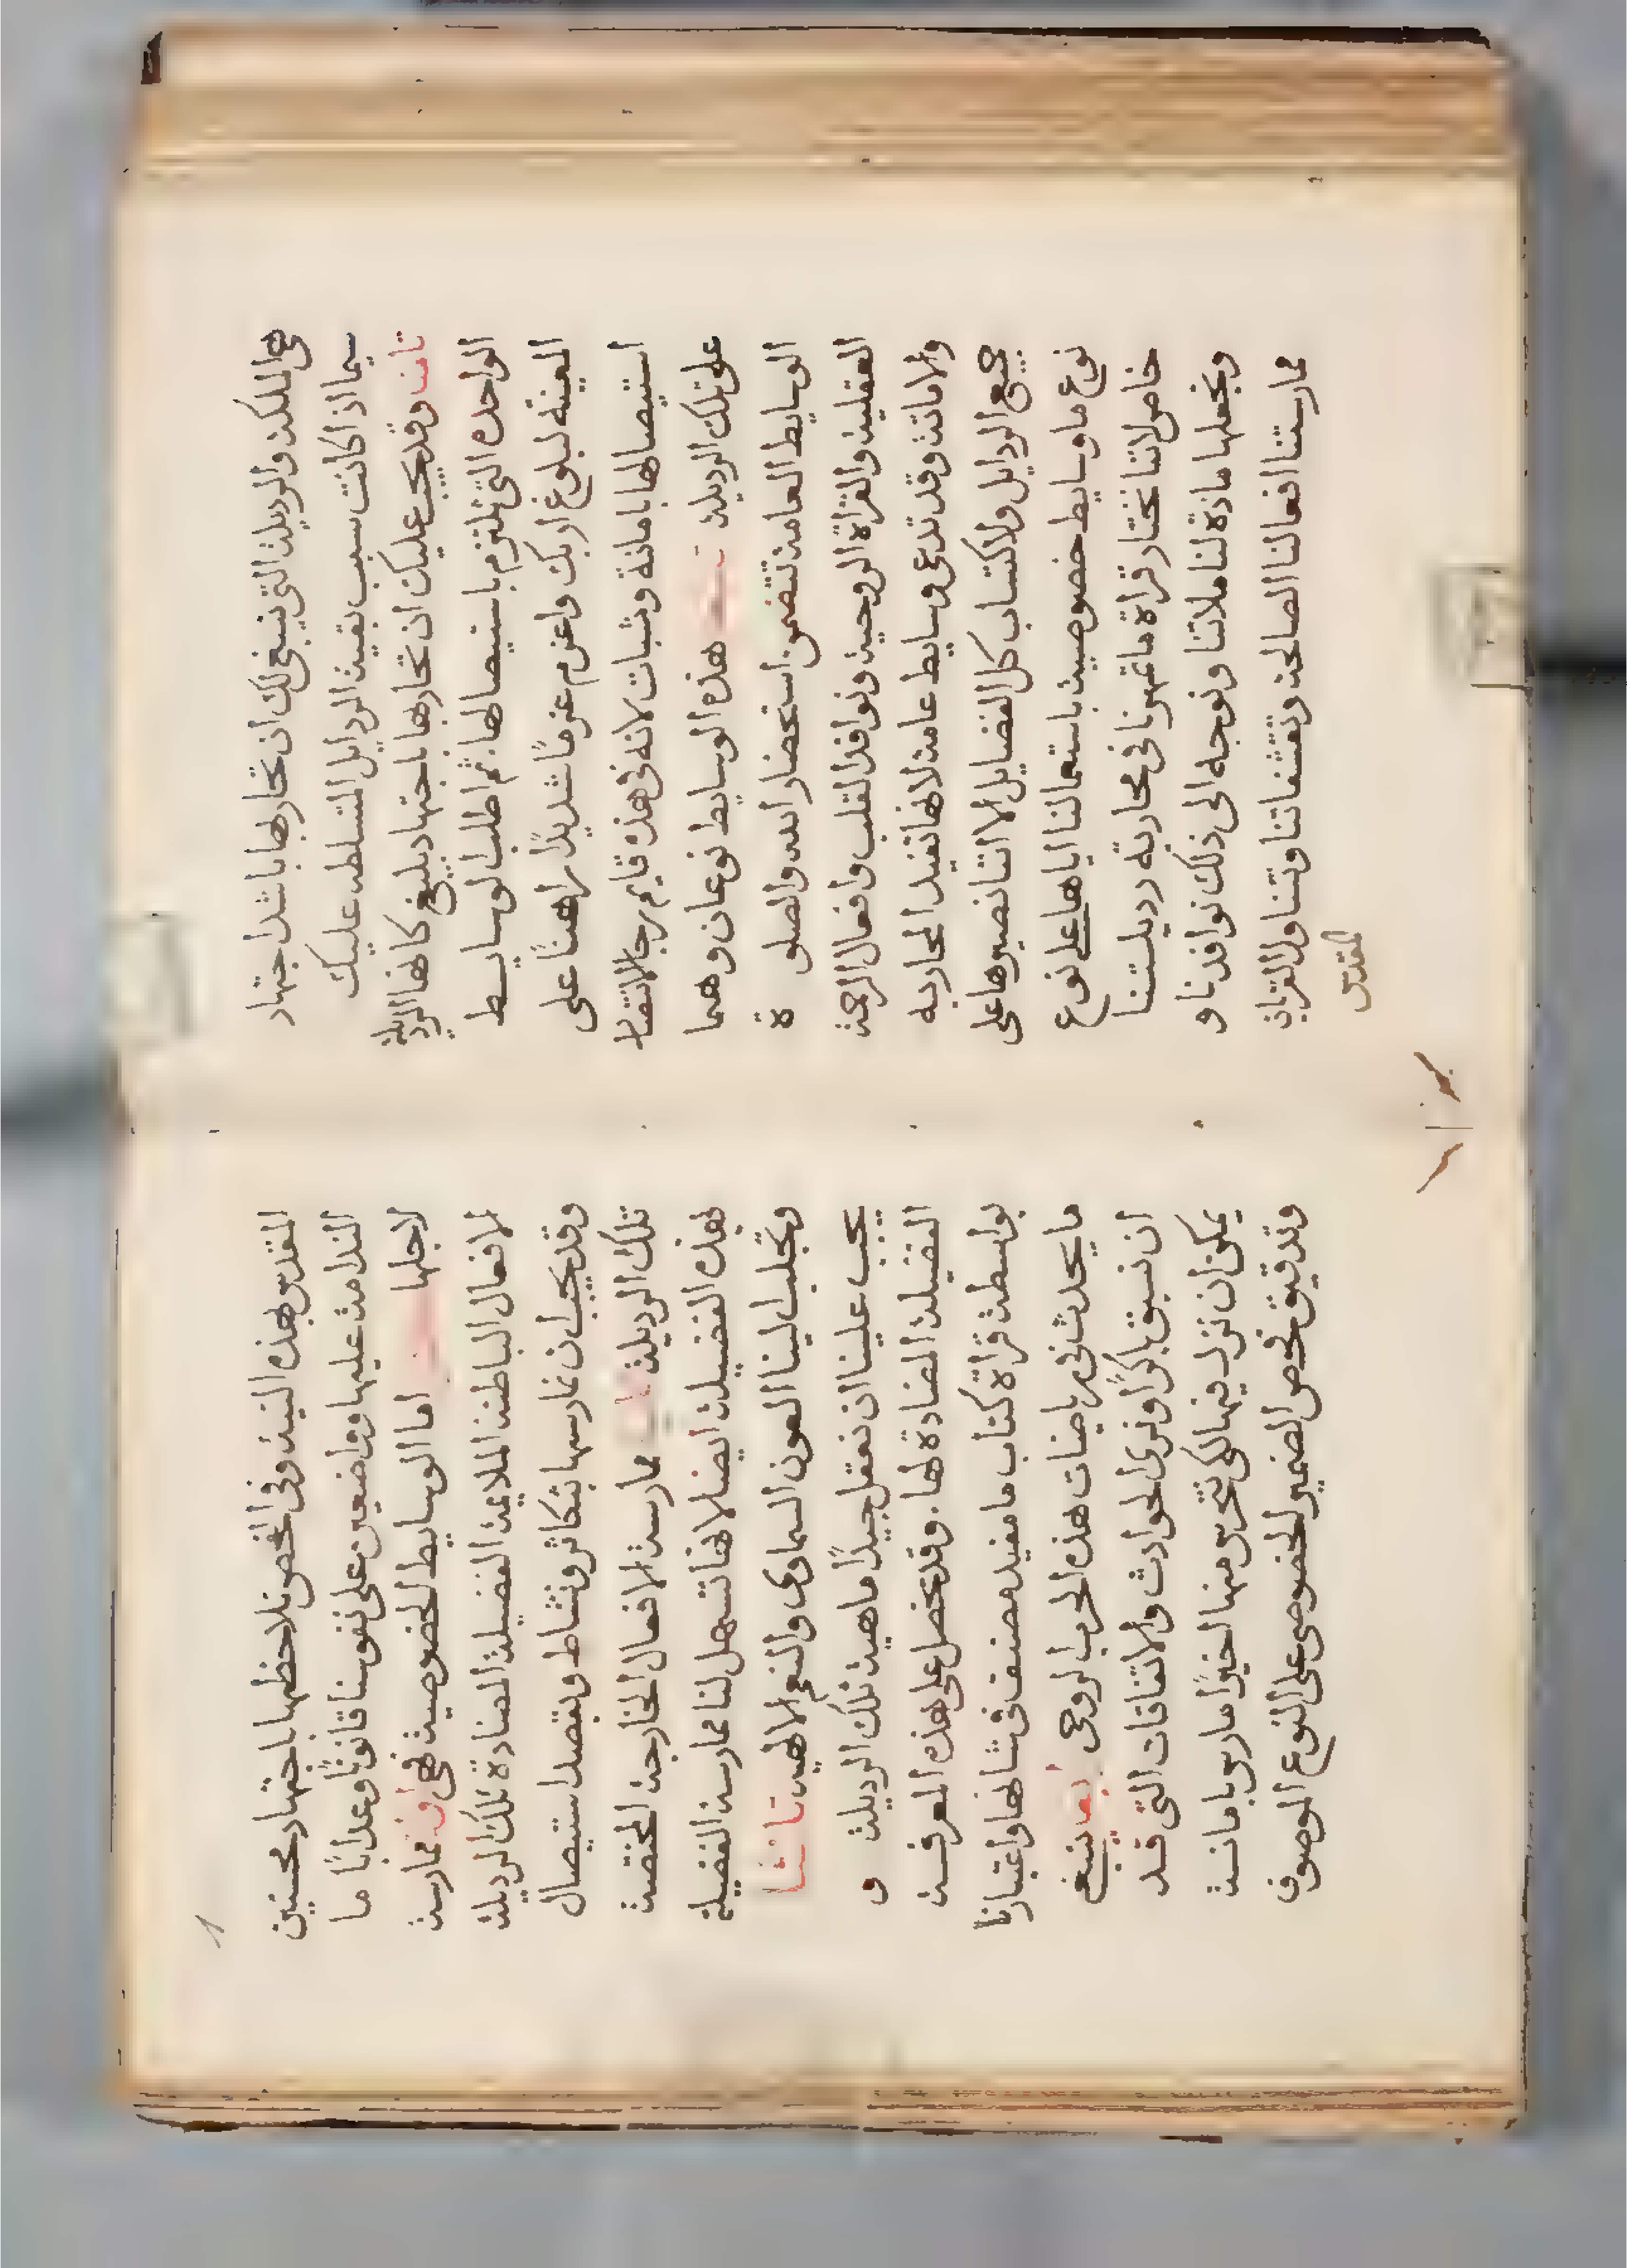 هي الملكة والرديلة التي ينبغي لك ان تحاربها باشد اجتهاد
سيما اذ كانت سبب بقية الردايل المتسلطه عليك
ثامنا وقد يجب عليك ان تحاربها باجتهاد بليغ كانها الرديلة
الواحده التي تلتزم باستيصالها. ثم اطلب الوسايط
المعينة لبلوغ اربك واعزم عزمًا شديدًا راهنًا على
استيصالها بامانة وثبات لانه في هذه قايم رجا الانتصار
على تلك الرديلة هذه الوسايط نوعان وهما
الوسايط العامة تتضمن استحضار الله والصلوة
العقلية والقراة الروحية ونوافذ القلب وافعال الرحمة
والاماتة وقد تدعى وسايط عامة لانها تفيد المحاربه
جميع الردايل ولاكتساب كل الفضايل الا اننا نصيرها على
نوع ما وسايط خصوصية باستعمالنا اياها على نوع
خاص لاننا نختار قراة ما تهونا في محاربة رديلتنا
ونجعلها مادة لتاملاتنا ونوجه الى ذلك نوافذنا و
ممارستنا افعالنا الصالحة وتقشفاتنا وتناولنا القربان
المقدس
المقدس بهذه النية وفي الفحص نلاحظها باجتهاد محسنين
الندامة عليها وواضعين على نفوسنا قانونًا وعذابًا ما
لاجلها اما الوسايط الخصوصية فهي اولا ممارسة
الافعال الباطنة الملايمة الفضيلة المضادة تلك الرديلة
وقد يجب ان نمارسها بتكاثر ونشاط وبقصد استيصال
تلك الرديلة ثانيا ممارسة الافعال الخارجة المختصة
بهذه الفضيلة ايضا لانها تسهل لنا ممارسة الفضيلة
وتجلب لينا العون السماوي والنعم الالهية ثالثا
يجب علينا ان نعقل جيدًا ماهية تلك الرديلة و
الفضيلة المضادة لها. وقد نحصل على هذه المعرفة
بواسطة قراة كتاب ما مفيد مصنف في شانها واعتبارنا
ما يحدث في رياضات هذه الحرب الروحي رابعا ينبغي
ان نسبق باكرًا ونرى الحوادث والاتفاقات التي قد
يمكن ان نزل فيها لكي نتحرس منها اخيرًا مارس بامانة
وتدقيق فحص الضمير الخصوصي على النوع الموصوف